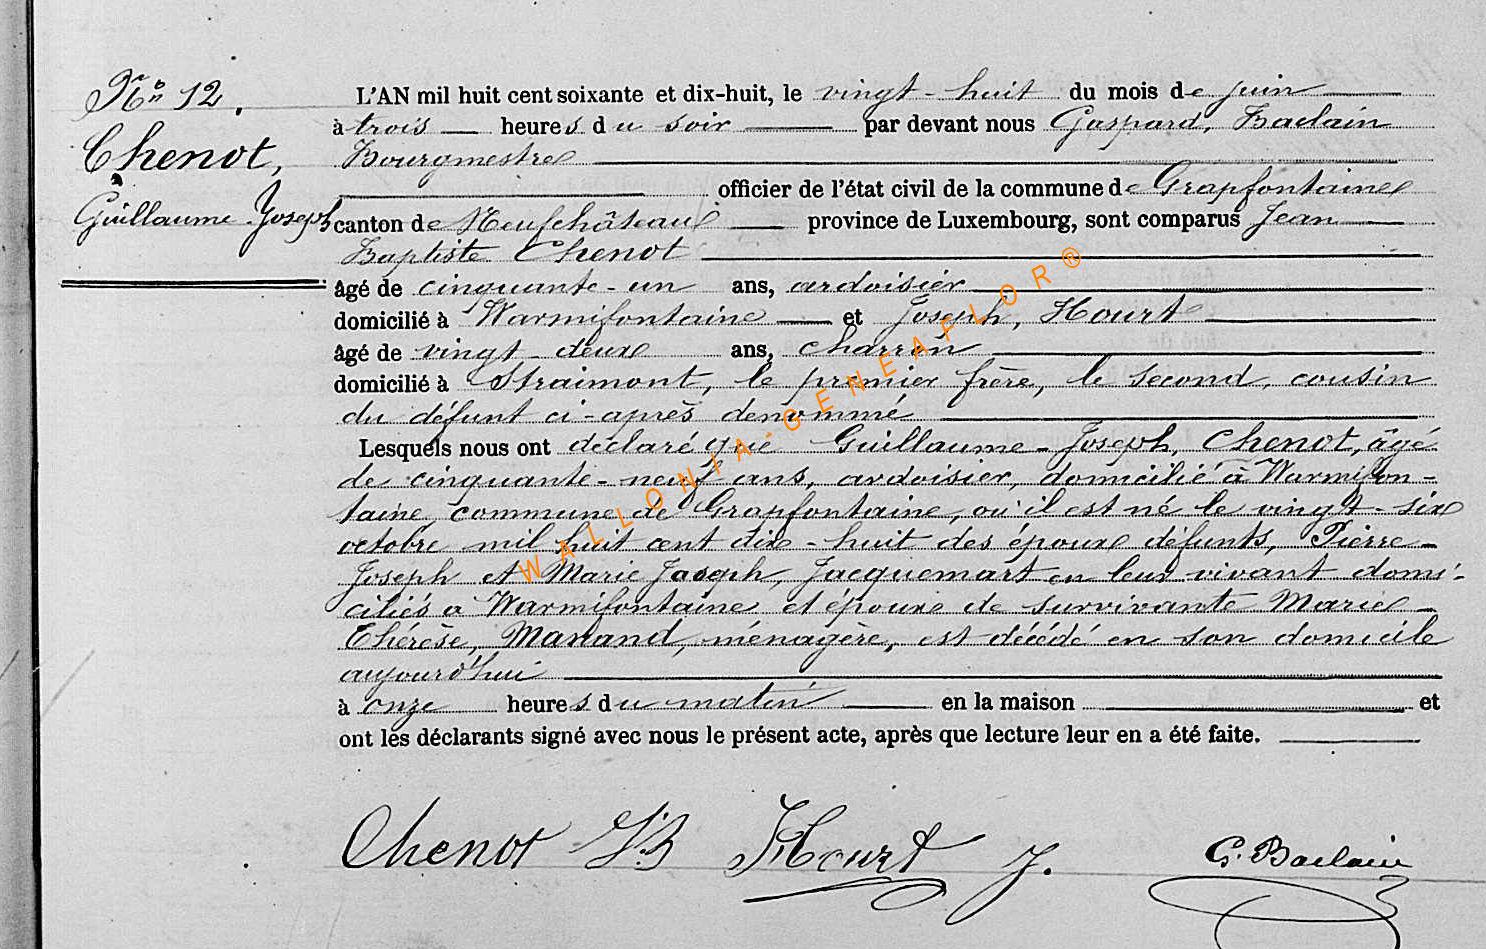 No 12.
Chenot,
Guillaume-Joseph
L'AN mil huit cent soixante et dix-huit, le vingt-huit du mois de juin
à trois heures du soir par devant nous Gaspard, Baclain
Bourgmestre
officier de l'état civil de la commune de Grapfontaine
canton de Neufchâteau province de Luxembourg, sont comparus Jean
Baptiste Chenot
âgé de cinquante-un ans, ardoisier
domicilié à Warmifontaine et Joseph, Hourt
âgé de vingt-deux ans, charron
domicilié à Straimont, le premier frère, le second, cousin
du défunt ci-après dénommé
Lesquels nous ont déclaré que Guillaume-Joseph, Chenot, âgé
de cinquante-neuf ans, ardoisier, domicilié à Warmifon-
taine commune de Grapfontaine, où il est né le vingt-six
octobre mil huit cent dix-huit des époux défunts, Pierre-
Joseph et Marie Joseph, Jacquemart en leur vivant domi-
ciliés à Warmifontaine et époux de survivante Marie-
Thérèse, ménagère, est décédé en son domicile
aujourd'hui
à onze heures du matin en la maison et
ont les déclarants signé avec nous le présent acte, après que lecture leur en a été faite.
Chenot JB Hourt J. G. Baclain
WALLONIA-GENEAFLOR®